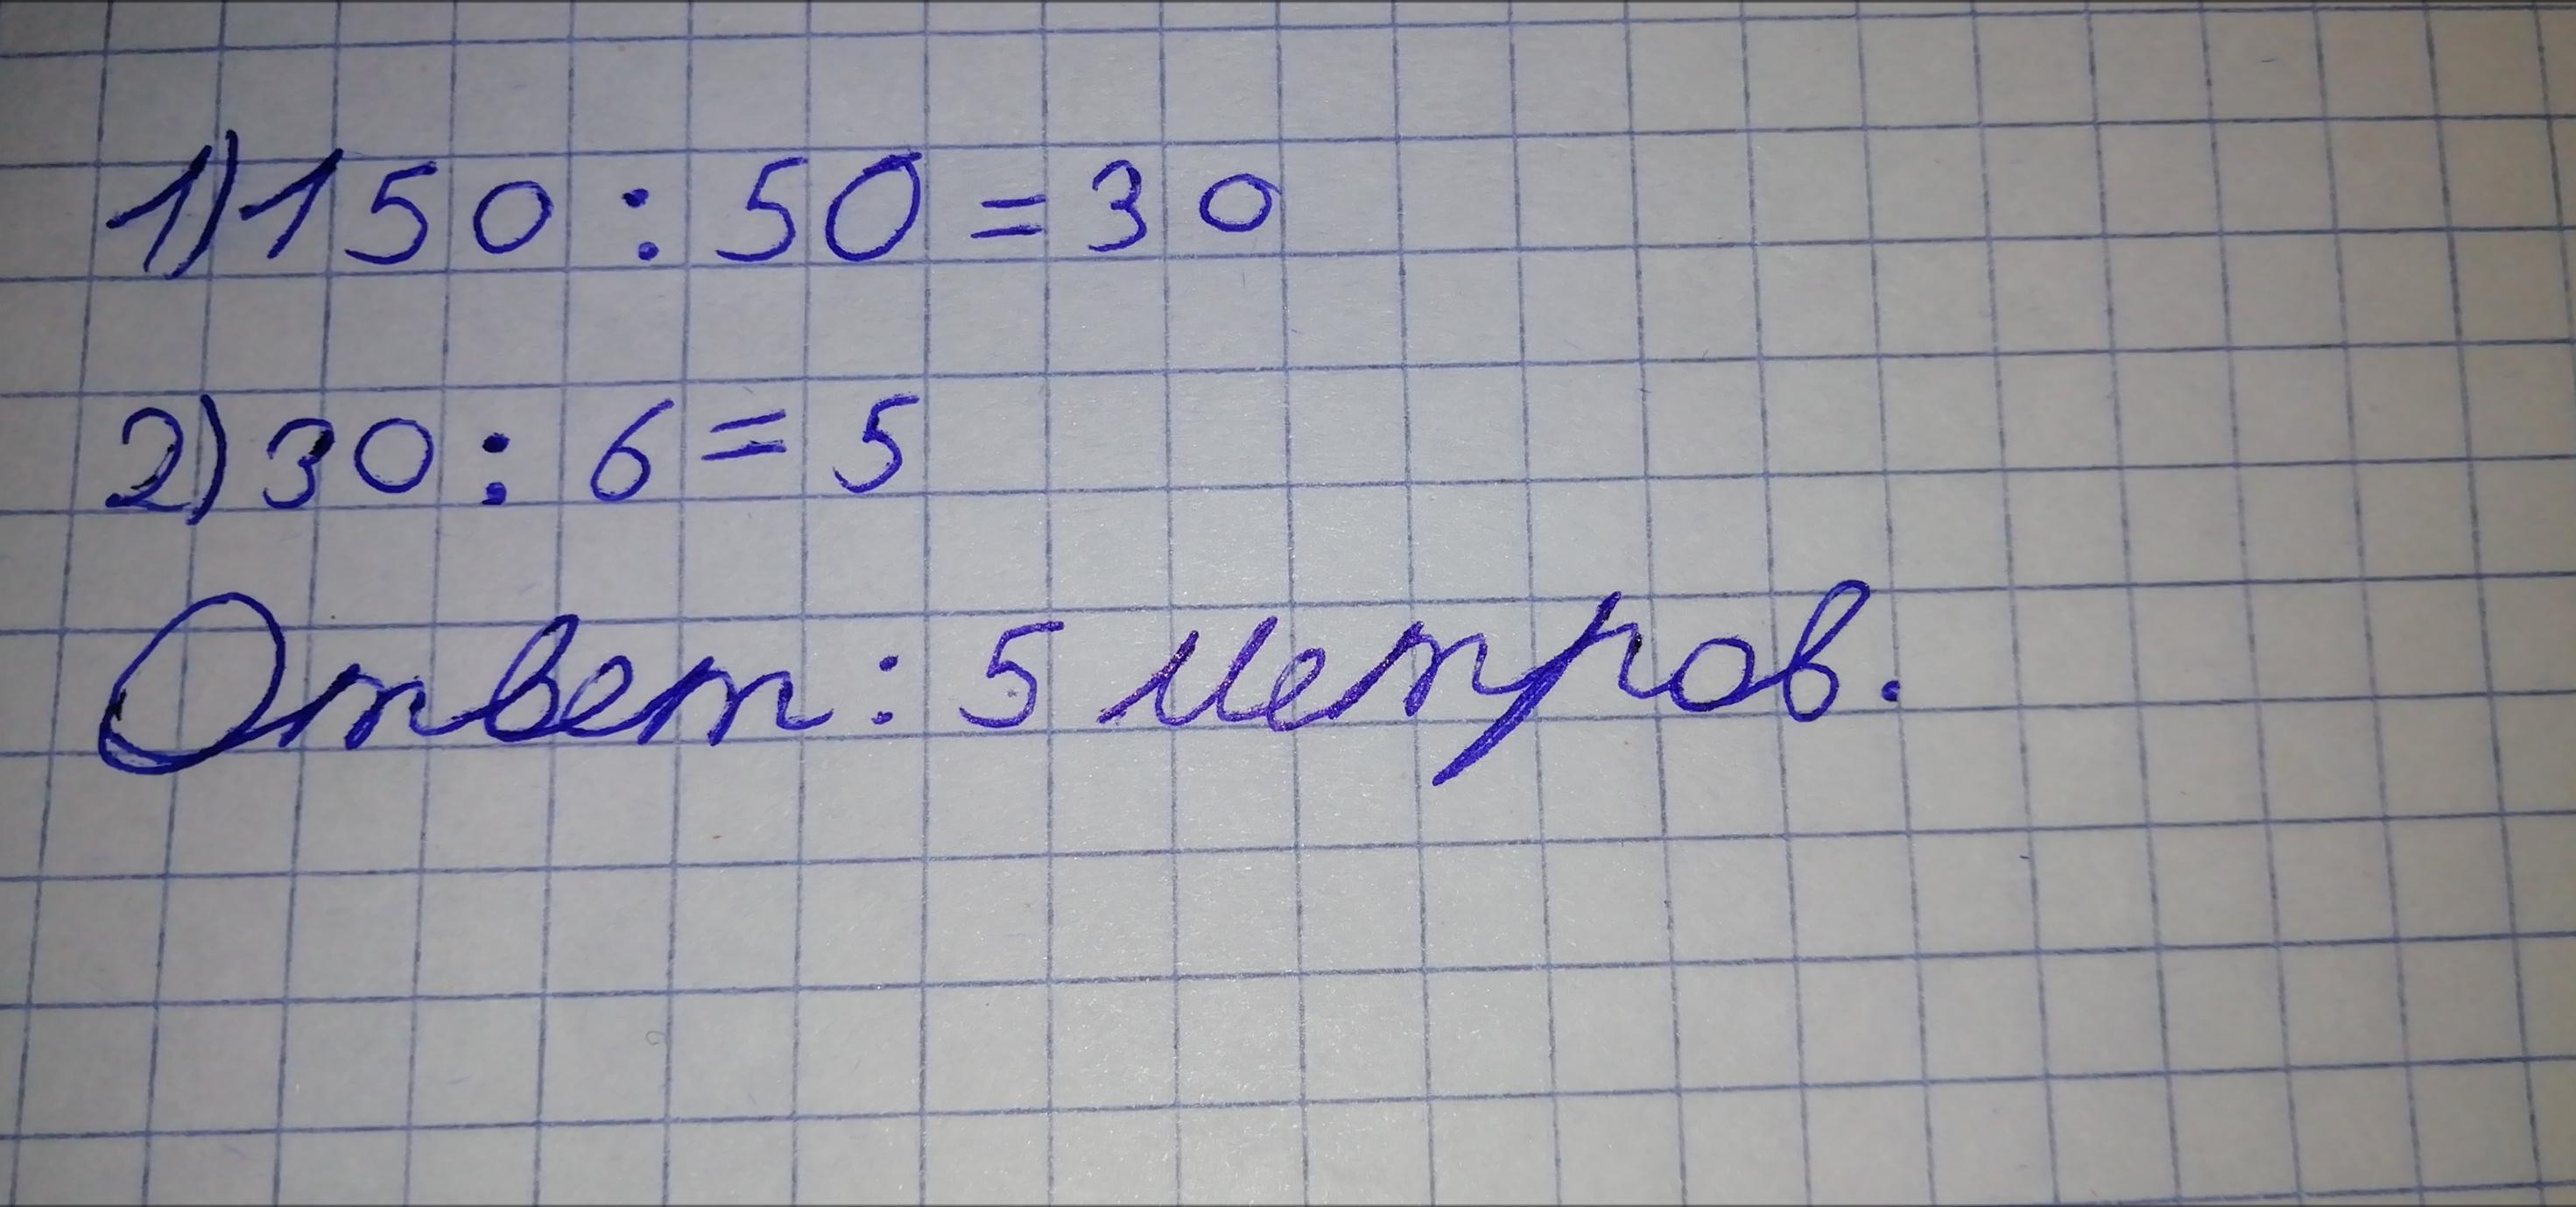 1) 150 : 50 = 30
2) 30 : 6 = 5
Ответ: 5 метров.